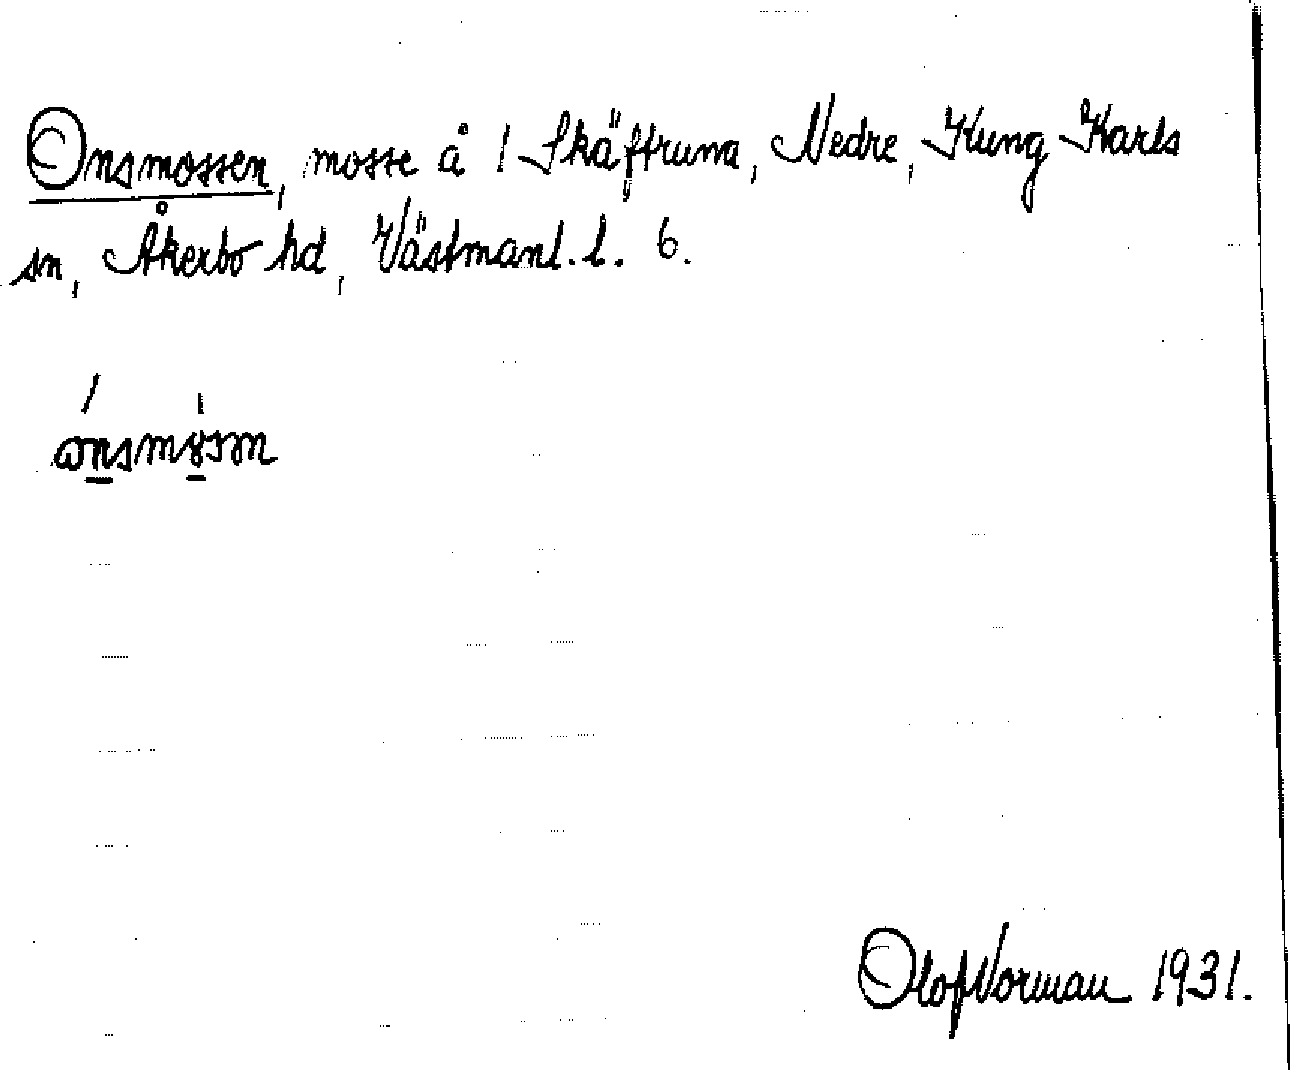 Onsmossen, mosse å 1 Skäftruna, Nedre, Kung Karls
sn, Åkerbo hd, Västmanl. l. 6.
Olof Norman 1931.